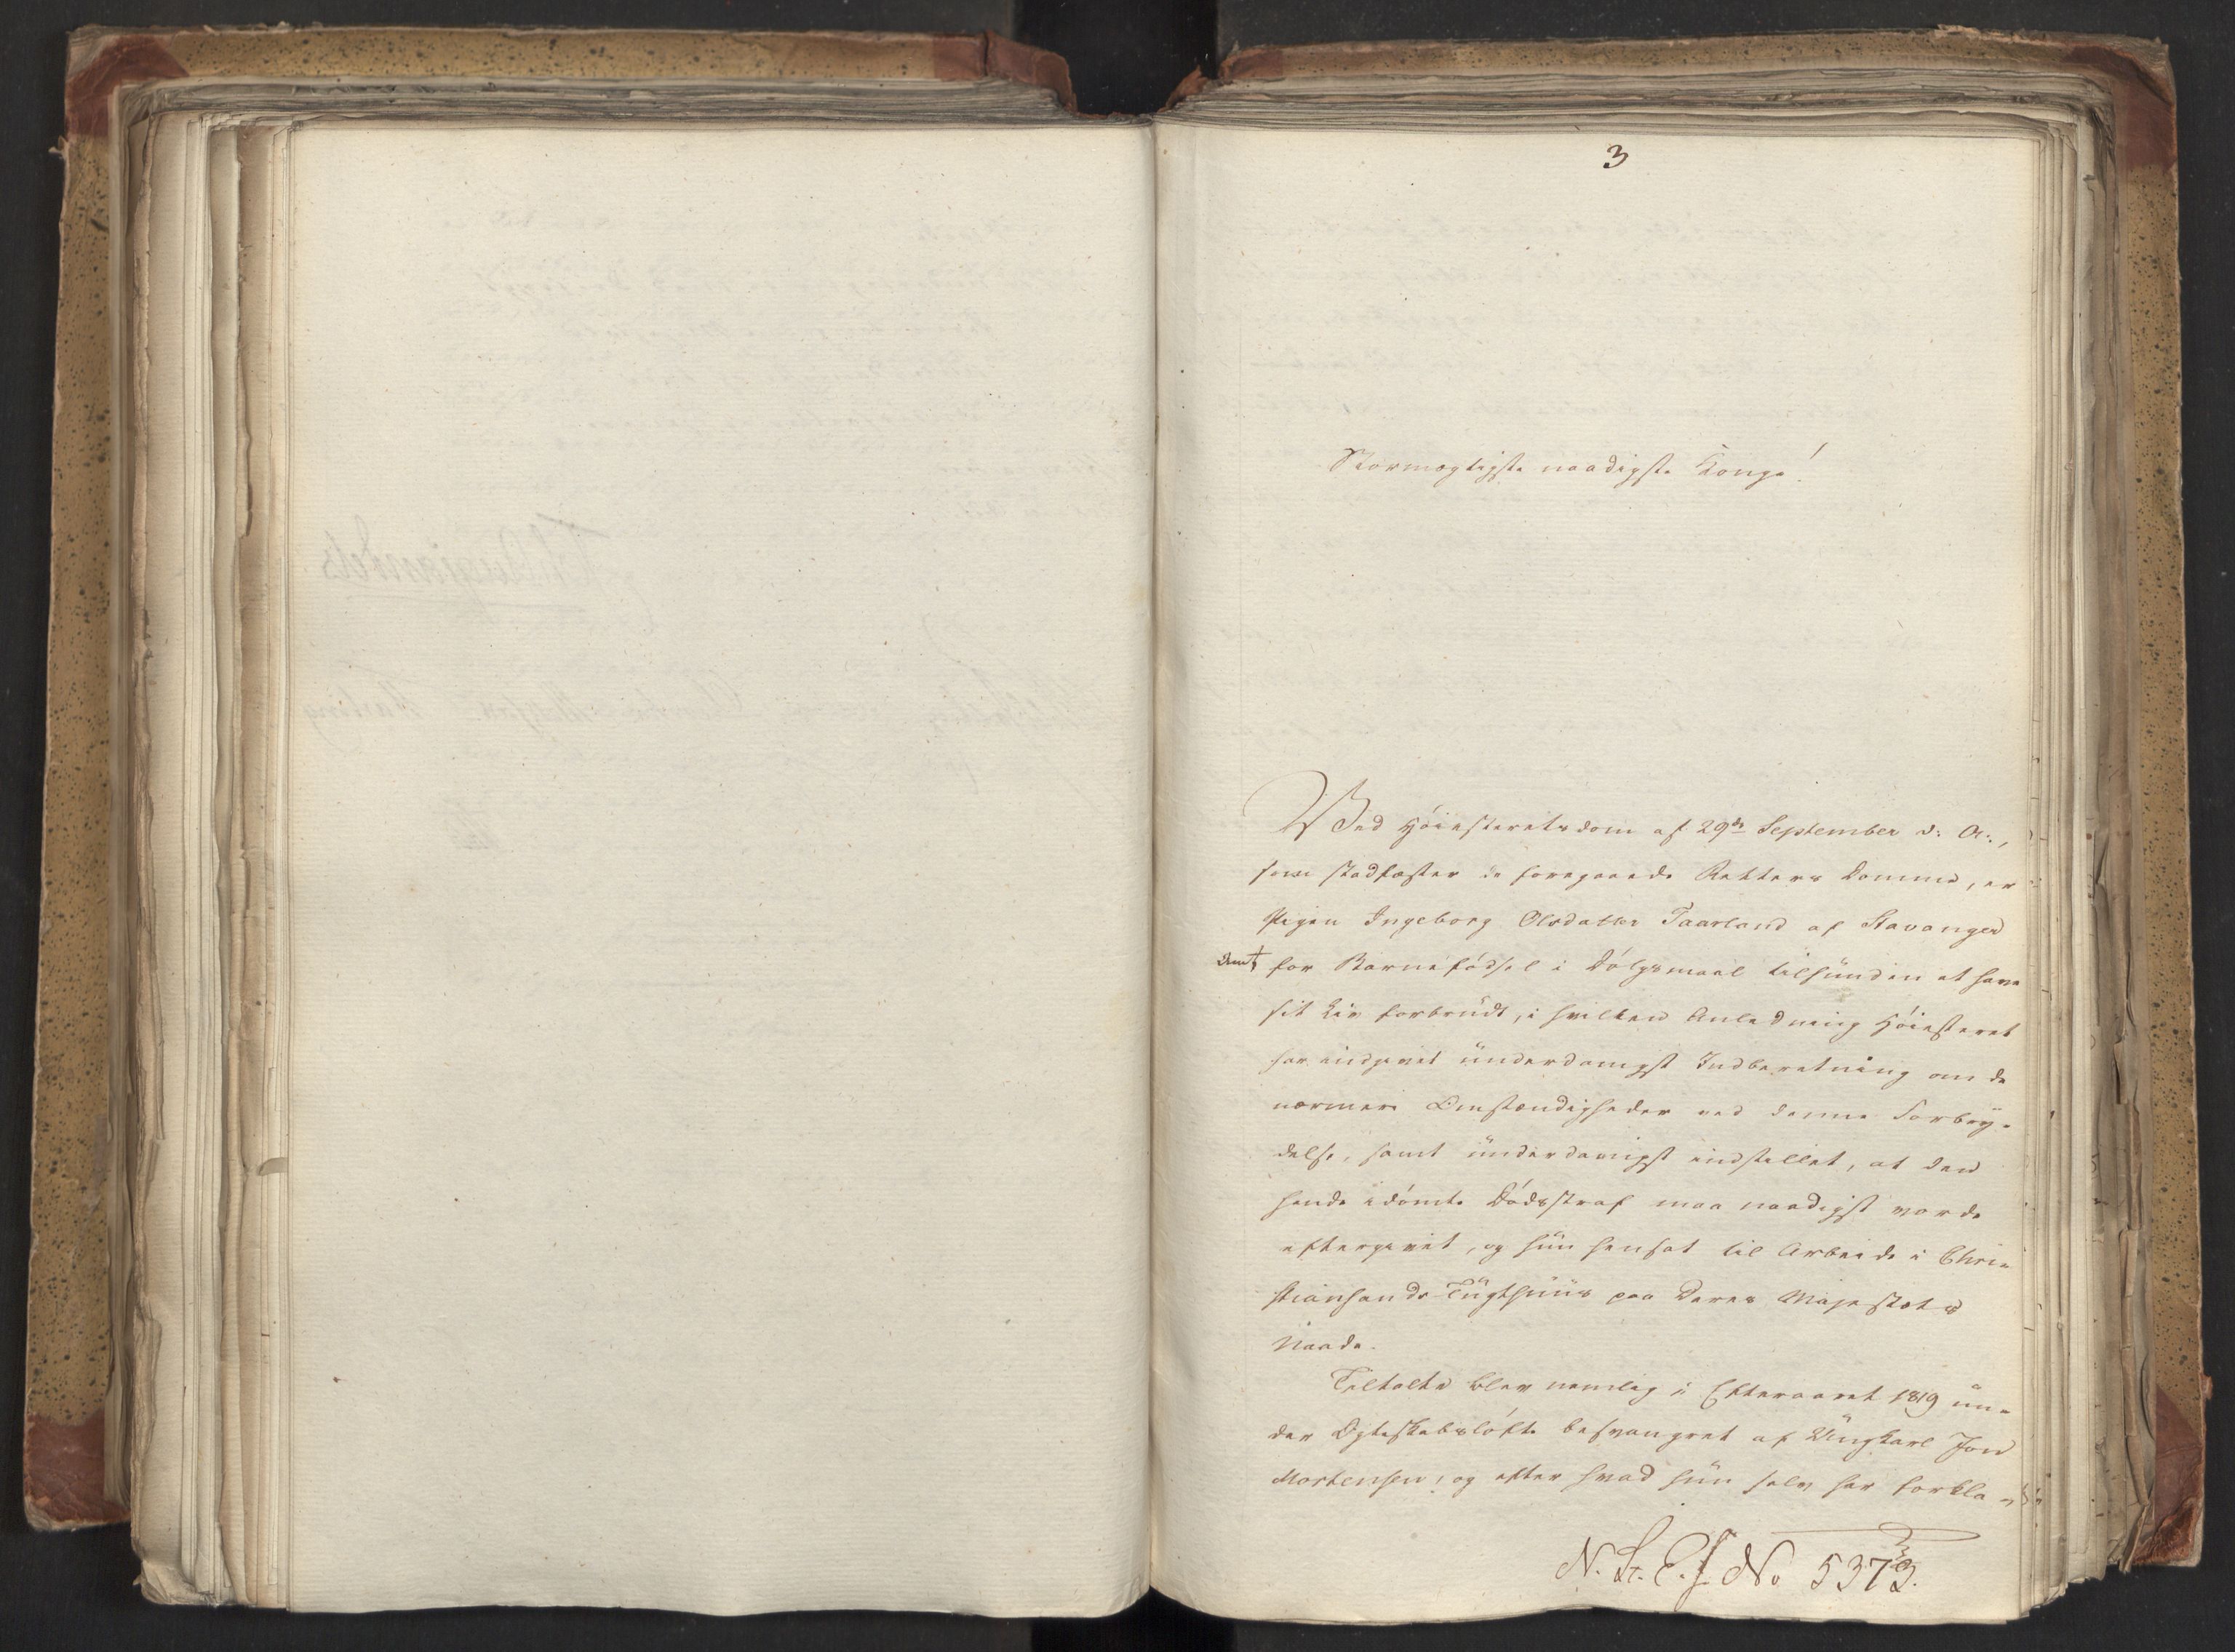 3
Stormægtigste naadigste Konge!
Ved Høiesteretsdom af 29de September d: A:,
som stadfæster de foregaaende Retters Domme, er
Pigen Ingeborg Olsdatter Taarland af Stavanger
Amt for Barnefødsel i Dølgsmaal tilfunden at have
sit Liv forbrudt, i hvilken Anledning Høiesteret
har indgivet underdanigst Indberetning om de
nærmere Omstændigheder ved denne Forbry-
delse, samt underdanigst indstillet, at den
hende idømte Dødsstraf maa naadigst vorde
eftergivet, og hun hensat til Arbeide i Chri-
stiansands Tugthuus paa Deres Majestæts
Naade.
Tiltalte blev nemlig i Efteraaret 1819 un-
der Ægteskabsløfte besvangret af Ungkarl Jon
Mortensen, og efter hvad hun selv har forkla-
N. St. E. J. No 5373.